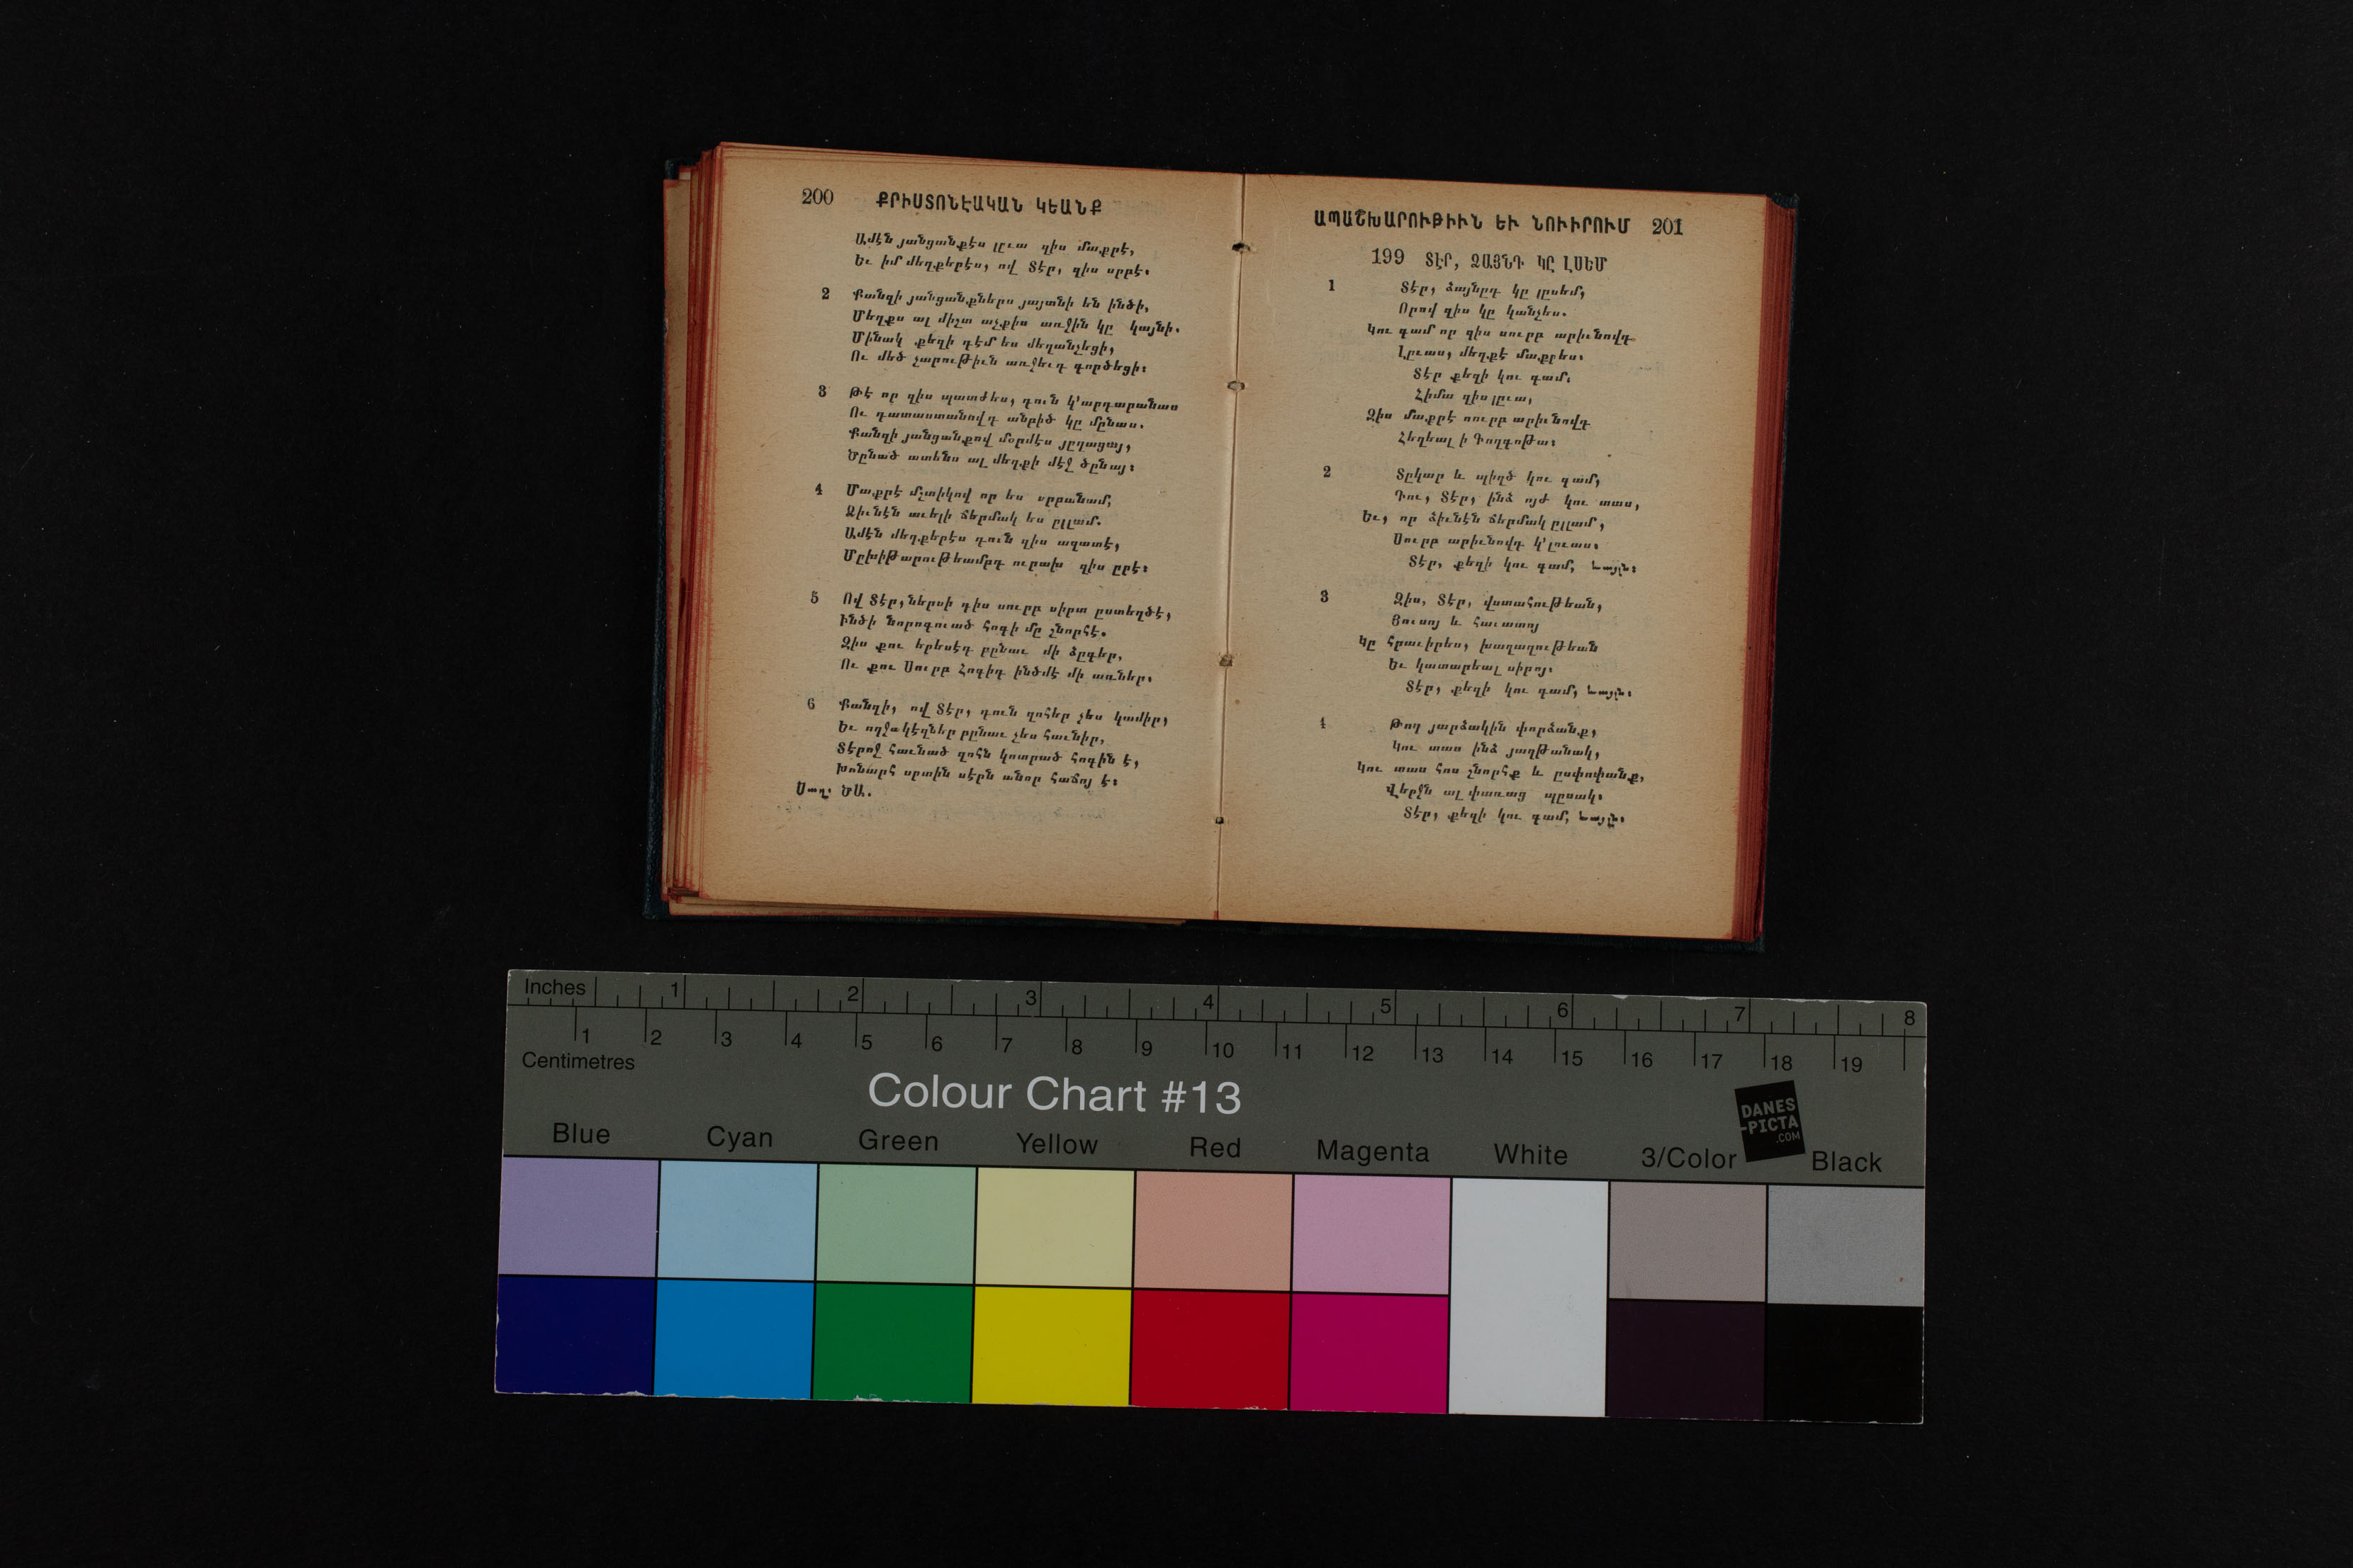 200 ՔՐԻՍՏՈՆԷԱԿԱՆ ԿԵԱՆՔ
Ամէն յանցանքէս լըւա զիս մաքրէ,
Եւ իմ մեղքերէս, ով Տէր, զիս սրբէ։
2 Քանզի յանցանքներս յայտնի են ինծի,
Մեղքս ալ միշտ աչքիս առջին կը կայնի.
Մինակ քեզի դէմ ես մեղանչեցի,
Ու մեծ չարութիւն առջեւդ գործեցի։
3 Թէ որ զիս պատժես, դուն կ՚արդարանաս
Ու դատաստանովդ անբիծ կը մընաս.
Քանզի յանցանքով մօրմէս յըղացայ,
Ծընած ատենս ալ մեղքի մէջ ծընայ։
4 Մաքրէ մշտիկով որ ես սրբանամ,
Ձիւնէն աւելի ճերմակ ես ըլլամ.
Ամէն մեղքերէս դուն զիս ազատէ,
Մըխիթարութեամբդ ուրախ զիս ըրէ։
5 Ով Տէր, ներսի դիս սուրբ սիրտ ըստեղծէ,
Ինծի նորոգուած հոգի մը շնորհէ.
Զիս քու երեսէդ բընաւ մի ձըգեր,
Ու քու Սուրբ Հոգիդ ինծմէ մի առներ։
6 Քանզի, ով Տէր, դուն զոհեր չես կամիր,
Եւ ողջակէզներ բընաւ չես հաւնիր,
Տէրոջ հաւնած զոհն կոտրած հոգին է,
Խոնարհ սրտին սէրն անոր հաճոյ է։
Սաղ. ԾԱ.
ԱՊԱՇԽԱՐՈՒԹԻՒՆ ԵՒ ՆՈՒԻՐՈՒՄ 201
199 ՏԷՐ, ՁԱՅՆԴ ԿԸ ԼՍԵՄ
1 Տէր, ձայնըդ կը լըսեմ,
Որով զիս կը կանչես.
Կու գամ որ զիս սուրբ արիւնովդ
Լըւաս, մեղքէ մաքրես։
Տէր քեզի կու գամ.
Հիմա զիս լըւա,
Զիս մաքրէ սուրբ արիւնովդ
Հեղեալ ի Գողգոթա։
2 Տըկար և պիղծ կու գամ,
Դու, Տէր, ինձ ոյժ կու տաս,
Եւ, որ ձիւնէն ճերմակ ըլլամ,
Սուրբ արիւնովդ կ՚լուաս։
Տէր, քեզի կու գամ, և այլն։
3 Զիս, Տէր, վստահութեան,
Յուսոյ և հաւատոյ
Կը հրաւիրես, խաղաղութեան
Եւ կատարեալ սիրոյ.
Տէր, քեզի կու գամ, և այլն։
4 Թող յարձակին փորձանք,
Կու տաս ինձ յաղթանակ,
Կու տաս հոս շնորհք և ըսփոփանք,
Վերջն ալ փառաց պըսակ։
Տէր, քեզի կու գամ, և այլն։
Inches 1 2 3 4 5 6 7 8
1 2 3 4 5 6 7 8 9 10 11 12 13 14 15 16 17 18 19
Centimetres
Colour Chart #13
DANES
-PICTA
.COM
Blue Cyan Green Yellow Red Magenta White 3/Color Black